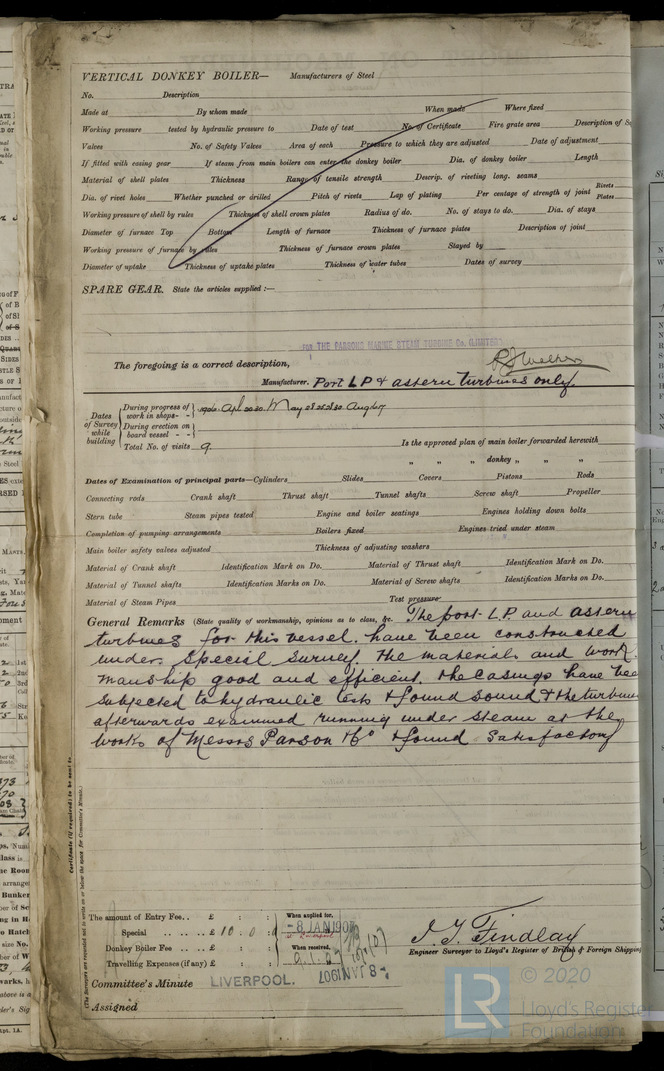 VERTICAL DONKEY BOILER— Manufacturers of Steel
No. Description
Made at By whom made When made Where fixed
Working pressure tested by hydraulic pressure to Date of test No. of Certificate Fire grate area Description of
Valves No. of Safety Valves Area of each Pressure to which they are adjusted Date of adjustment
If fitted with easing gear If steam from main boilers can enter the donkey boiler Dia. of donkey boiler Length
Material of shell plates Thickness Range of tensile strength Descrip. of riveting long. seams
Dia. of rivet holes Whether punched or drilled Pitch of rivets Lap of plating Per centage of strength of joint Rivets Plates
Working pressure of shell by rules Thickness of shell crown plates Radius of do. No. of stays to do. Dia. of stays
Diameter of furnace Top Bottom Length of furnace Thickness of furnace plates Description of joint
Working pressure of furnace by rules Thickness of furnace crown plates Stayed by
Diameter of uptake Thickness of uptake plates Thickness of water tubes Dates of survey
SPARE GEAR. State the articles supplied :—
FOR THE PARSONS MARINE STEAM TURBINE Co. (LIMITED)
The foregoing is a correct description,
Manufacturer. Port LP & astern turbines only.
Dates of Survey while building
During progress of work in shops - -
During erection on board vessel - -
Total No. of visits 9. Is the approved plan of main boiler forwarded herewith
" " donkey " " "
Dates of Examination of principal parts—Cylinders Slides Covers Pistons Rods
Connecting rods Crank shaft Thrust shaft Tunnel shafts Screw shaft Propeller
Stern tube Steam pipes tested Engine and boiler seatings Engines holding down bolts
Completion of pumping arrangements Boilers fixed Engines tried under steam
Main boiler safety valves adjusted Thickness of adjusting washers
Material of Crank shaft Identification Mark on Do. Material of Thrust shaft Identification Mark on Do.
Material of Tunnel shafts Identification Marks on Do. Material of Screw shafts Identification Marks on Do.
Material of Steam Pipes Test pressure
General Remarks (State quality of workmanship, opinions as to class, &c. The port L.P. and astern
turbines for this vessel. have been constructed
under Special Survey. the materials and work
manship good and efficient. the casings have
subjected to hydraulic tests & found sound & the
afterwards examined running under steam at the
works of Messrs Parson & Co & found satisfactory
Certificate (if required) to be sent to
(The Surveyors are requested not to write on or below the space for Committee's Minute.)
The amount of Entry Fee.. £ : : When applied for,
Special .. .. .. .. £ 10 : 0 : 0 -8 JAN 1907
Donkey Boiler Fee .. .. £ : : When received,
Travelling Expenses (if any) £ : : 9.1.07
J. G. Findlay
Engineer Surveyor to Lloyd's Register of British & Foreign Shipping
Committee's Minute LIVERPOOL. 8 JAN 1907
Assigned
© 2020
LR
Lloyd's Register
Foundation